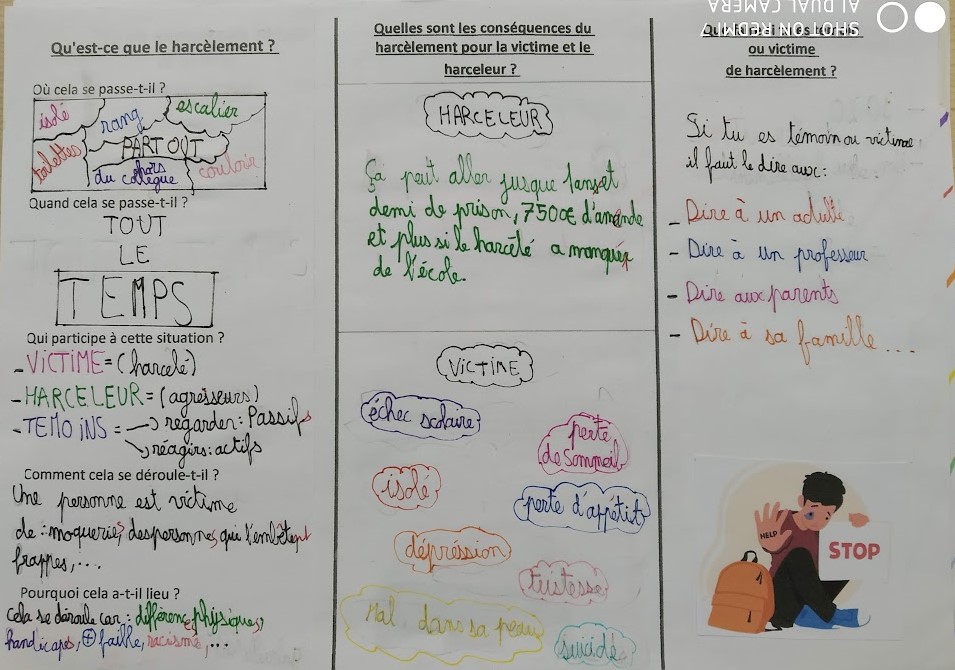 Qu'est-ce que le harcèlement ?
Où cela se passe-t-il ?
isolé
rang
escalier
toilettes
PARTOUT
hors
du collègue
couloir
Quand cela se passe-t-il ?
TOUT
LE
TEMPS
Qui participe à cette situation ?
- VICTIME = (harcelé)
- HARCELEUR = (agresseurs)
- TEMOINS = → regarder : Passifs
↳ réagirs : actifs
Comment cela se déroule-t-il ?
Une personne est victime
de : moqueries, des personnes qui l'embêtent
frappes, ...
Pourquoi cela a-t-il lieu ?
Cela se déroule car : différence physiques,
handicapes, + faille, racisme, ...
Quelles sont les conséquences du
harcèlement pour la victime et le
harceleur ?
HARCELEUR
Ça peut aller jusque 1 ans et
demi de prison, 7500€ d'amande
et plus si le harcelé a manquer
de l'école.
VICTIME
échec scolaire
perte
de Sommeil
isolé
perte d'appétit
dépréssion
tristesse
Mal dans sa peau
suicide
ou victime
de harcèlement ?
Si tu es témoin ou victime
il faut le dire aux :
- Dire à un adulte
- Dire à un professeur
- Dire aux parents
- Dire à sa famille ...
HELP
STOP
SHOT ON REDMI
AI DUAL CAMERA